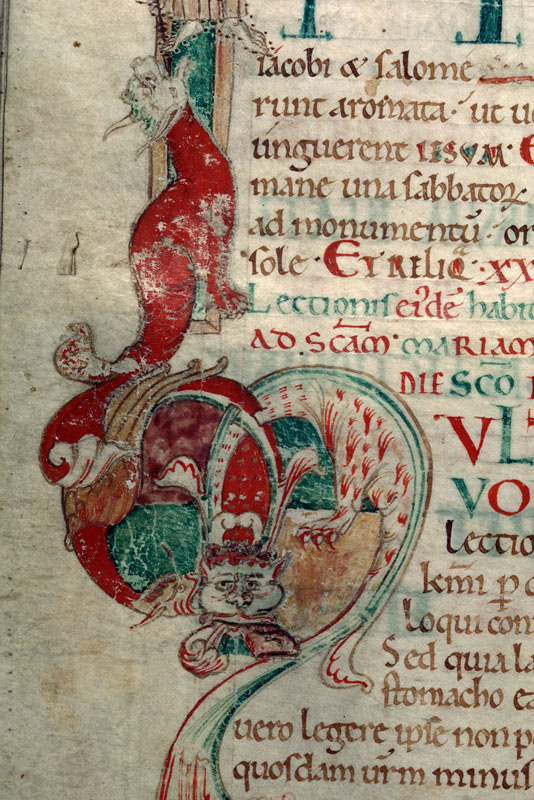 iacobi & salomé
runt aromata· ut u
unguerent IESUM· E
mane una sabbatoꝝ
ad monumentū· or
sole· ET RELIQ̄·XX
Lectionis ei'dē habit
AD· SCAM MARIAM
DIE SCO
VLT
VO
Lectio
kēmi p
loqui con
Sed quia la
stomacho ea
uero legere ipse non p
quosdam ur̄m minus